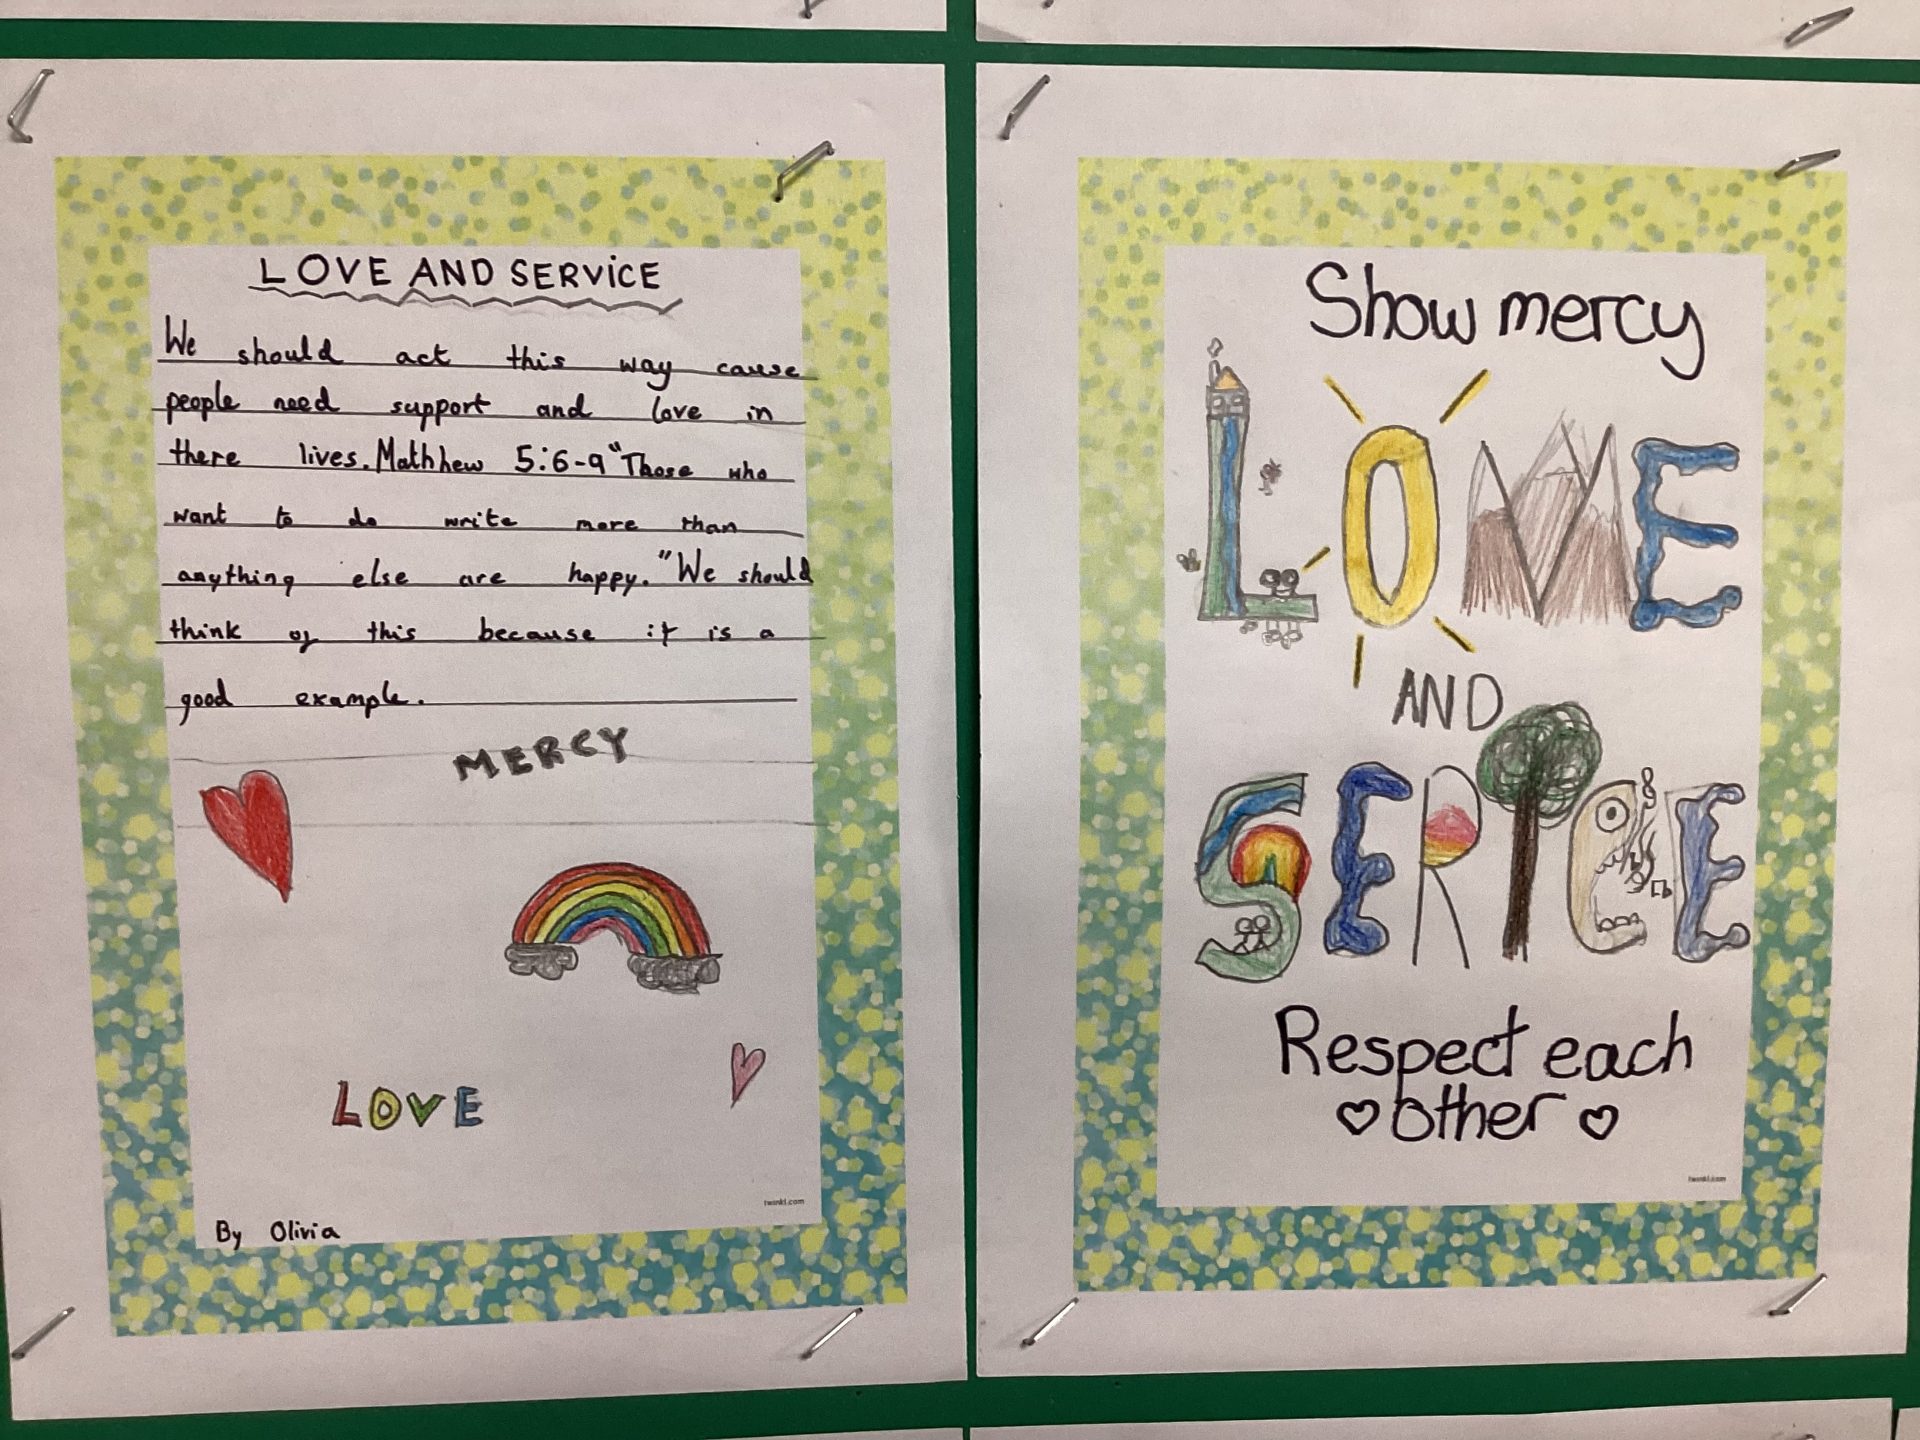 LOVE AND SERViCE
We should act this way cause
people need support and love in
there lives. Mathhew 5:6-9 "Those who
want to do write more than
anything else are happy." We should
think of this because it is a
good example.
MERCY
LOVE
twinkl.com
By Olivia
Show mercy
LOVE
AND
SERVICE
Respect each
other
twinkl.com